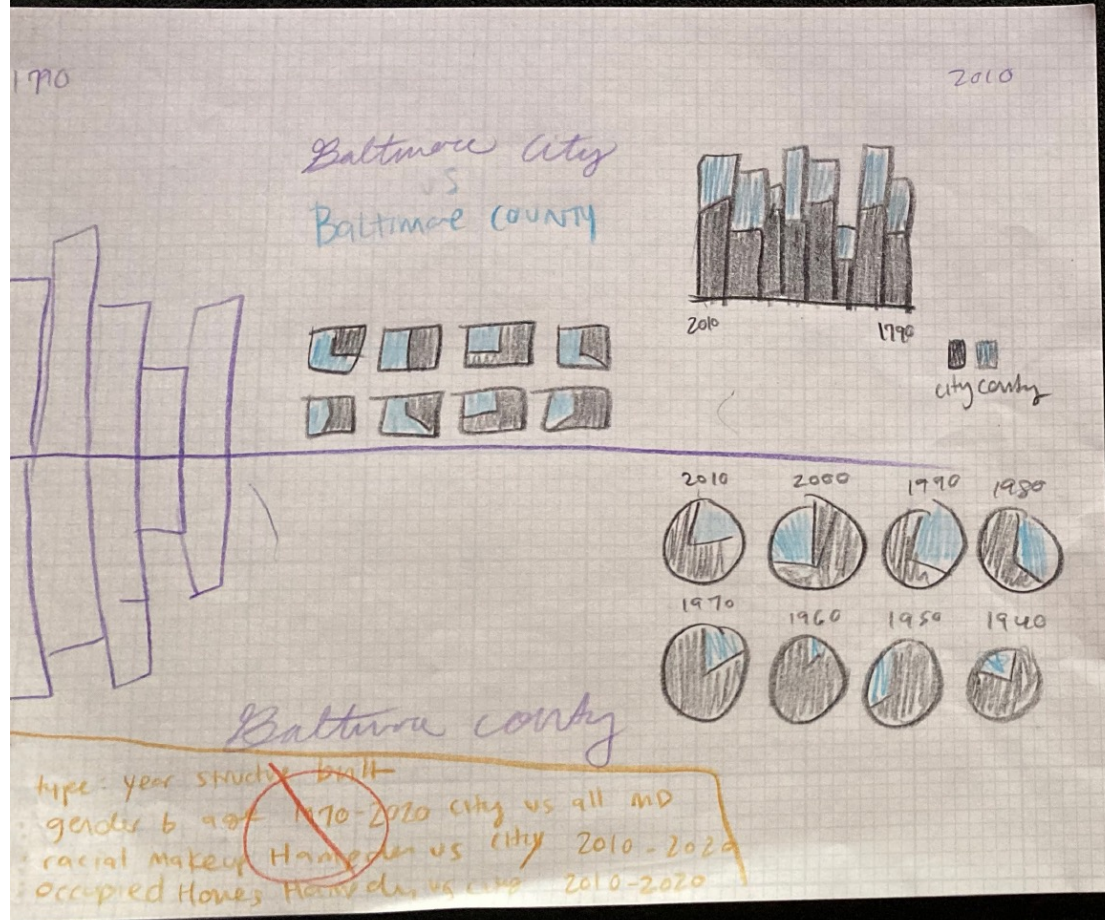 1790
2010
Baltimore City
vs
Baltimore COUNTY
2010 1790
city county
2010 2000 1990 1980
1970 1960 1950 1940
Baltimore county
type: year structure built
gender b age 1970-2020 city vs all MD
racial makeup vs city 2010-2020
occupied Homes vs 2010-2020